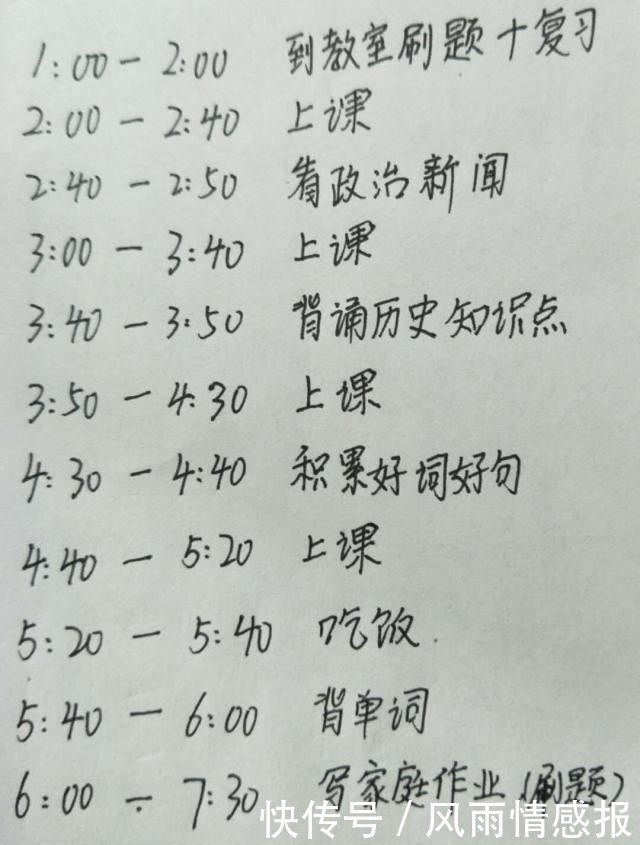 1:00 — 2:00 到教室刷题+复习
2:00 — 2:40 上课
2:40 — 2:50 看政治新闻
3:00 — 3:40 上课
3:40 — 3:50 背诵历史知识点
3:50 — 4:30 上课
4:30 — 4:40 积累好词好句
4:40 — 5:20 上课
5:20 — 5:40 吃饭.
5:40 — 6:00 背单词
6:00 ÷ 7:30 写家庭作业(刷题)
快传号/风雨情感报